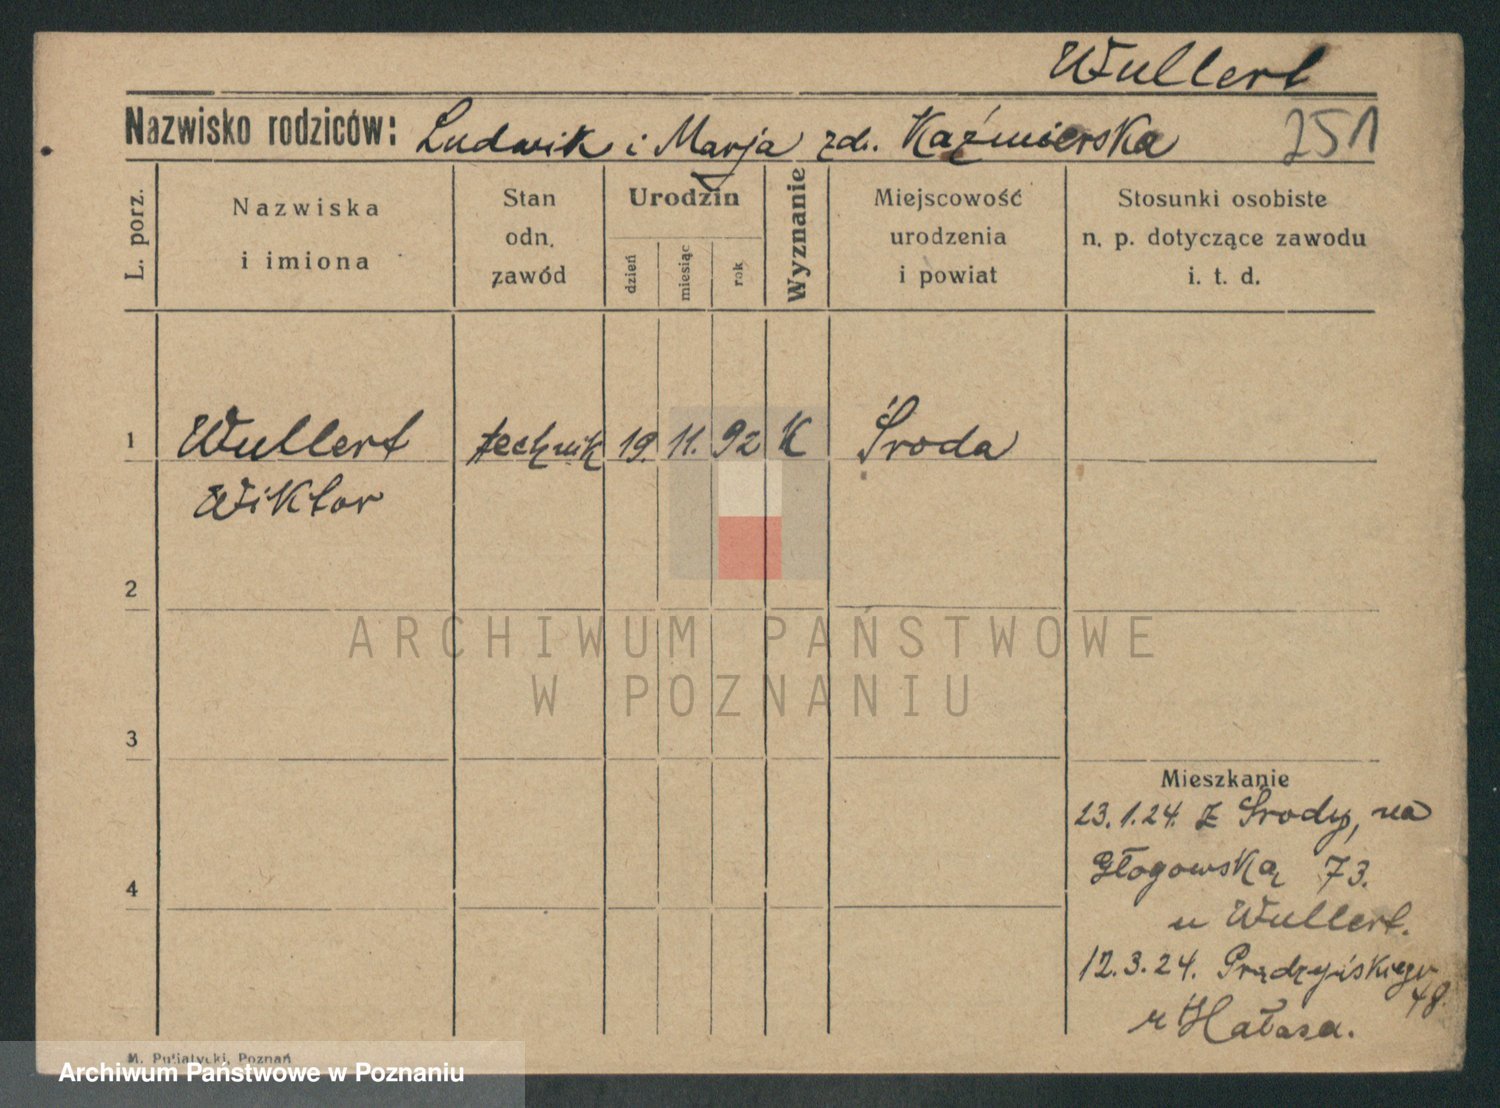 Wullert
Nazwisko rodziców: Ludwik i Marja zd. Kaźmierska 251
L. porz.
Nazwiska
i imiona
Stan
odn.
zawód
Urodzin
dzień
miesiąc
rok
Wyznanie
Miejscowość
urodzenia
i powiat
Stosunki osobiste
n. p. dotyczące zawodu
i. t. d.
1 Wullert technik 19. 11. 92 K Środa
Wiktor
2
3
4
ARCHIWUM PAŃSTWOWE
W POZNANIU
Mieszkanie
23.1.24. z Środy, na
Głogowską 73.
u Wullert.
12.3.24. Prądzyńskiego
48.
u Hałasa.
M. Putiatycki, Poznań
Archiwum Państwowe w Poznaniu